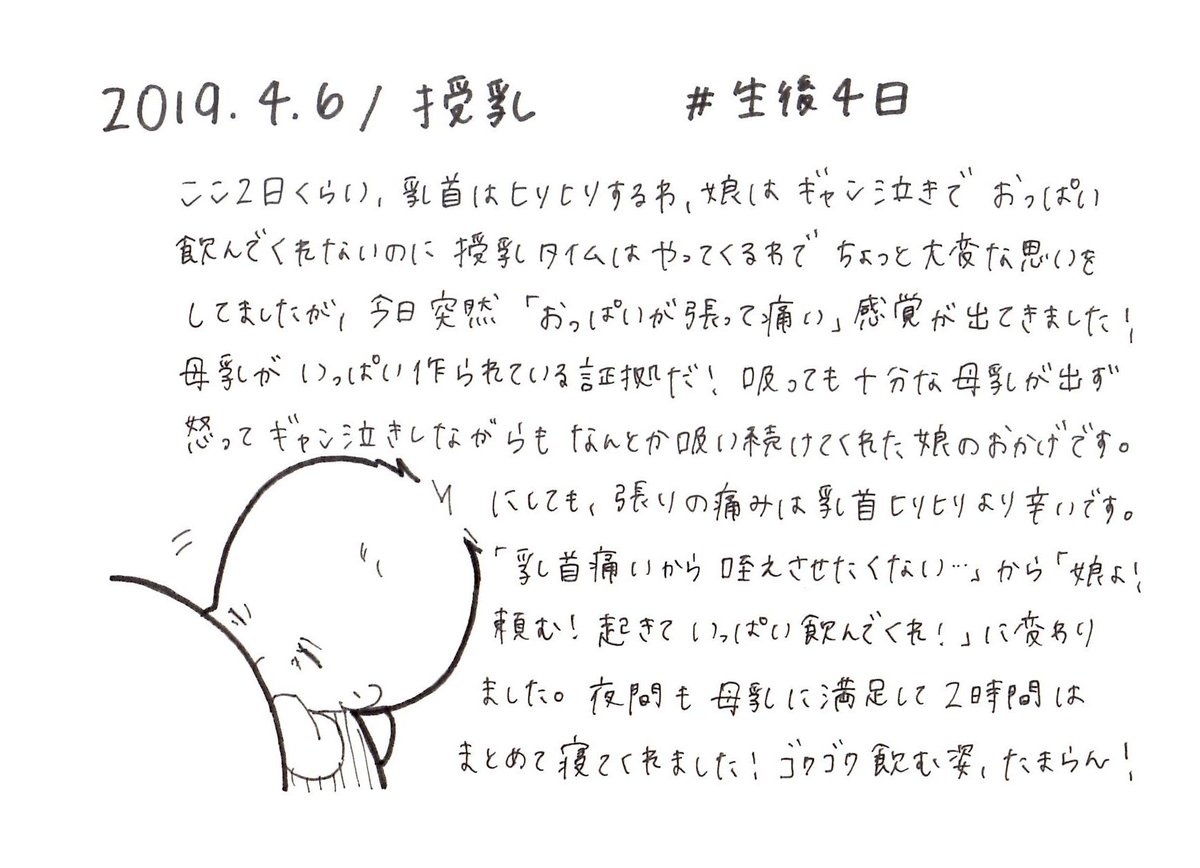 2019.4.6/授乳 #生後4日
ここ2日くらい、乳首はヒリヒリするわ、娘はギャン泣きでおっぱい
飲んでくれないのに授乳タイムはやってくるわでちょっと大変な思いを
してましたが、今日突然「おっぱいが張って痛い」感覚が出てきました!
母乳がいっぱい作られている証拠だ!吸っても十分な母乳が出ず
怒ってギャン泣きしながらもなんとか吸い続けてくれた娘のおかげです。
にしても、張りの痛みは乳首ヒリヒリより辛いです。
「乳首痛いから咥えさせたくない…」から「娘よ!
頼む!起きていっぱい飲んでくれ!」に変わり
ました。夜間も母乳に満足して2時間は
まとめて寝てくれました!ゴクゴク飲む姿、たまらん!